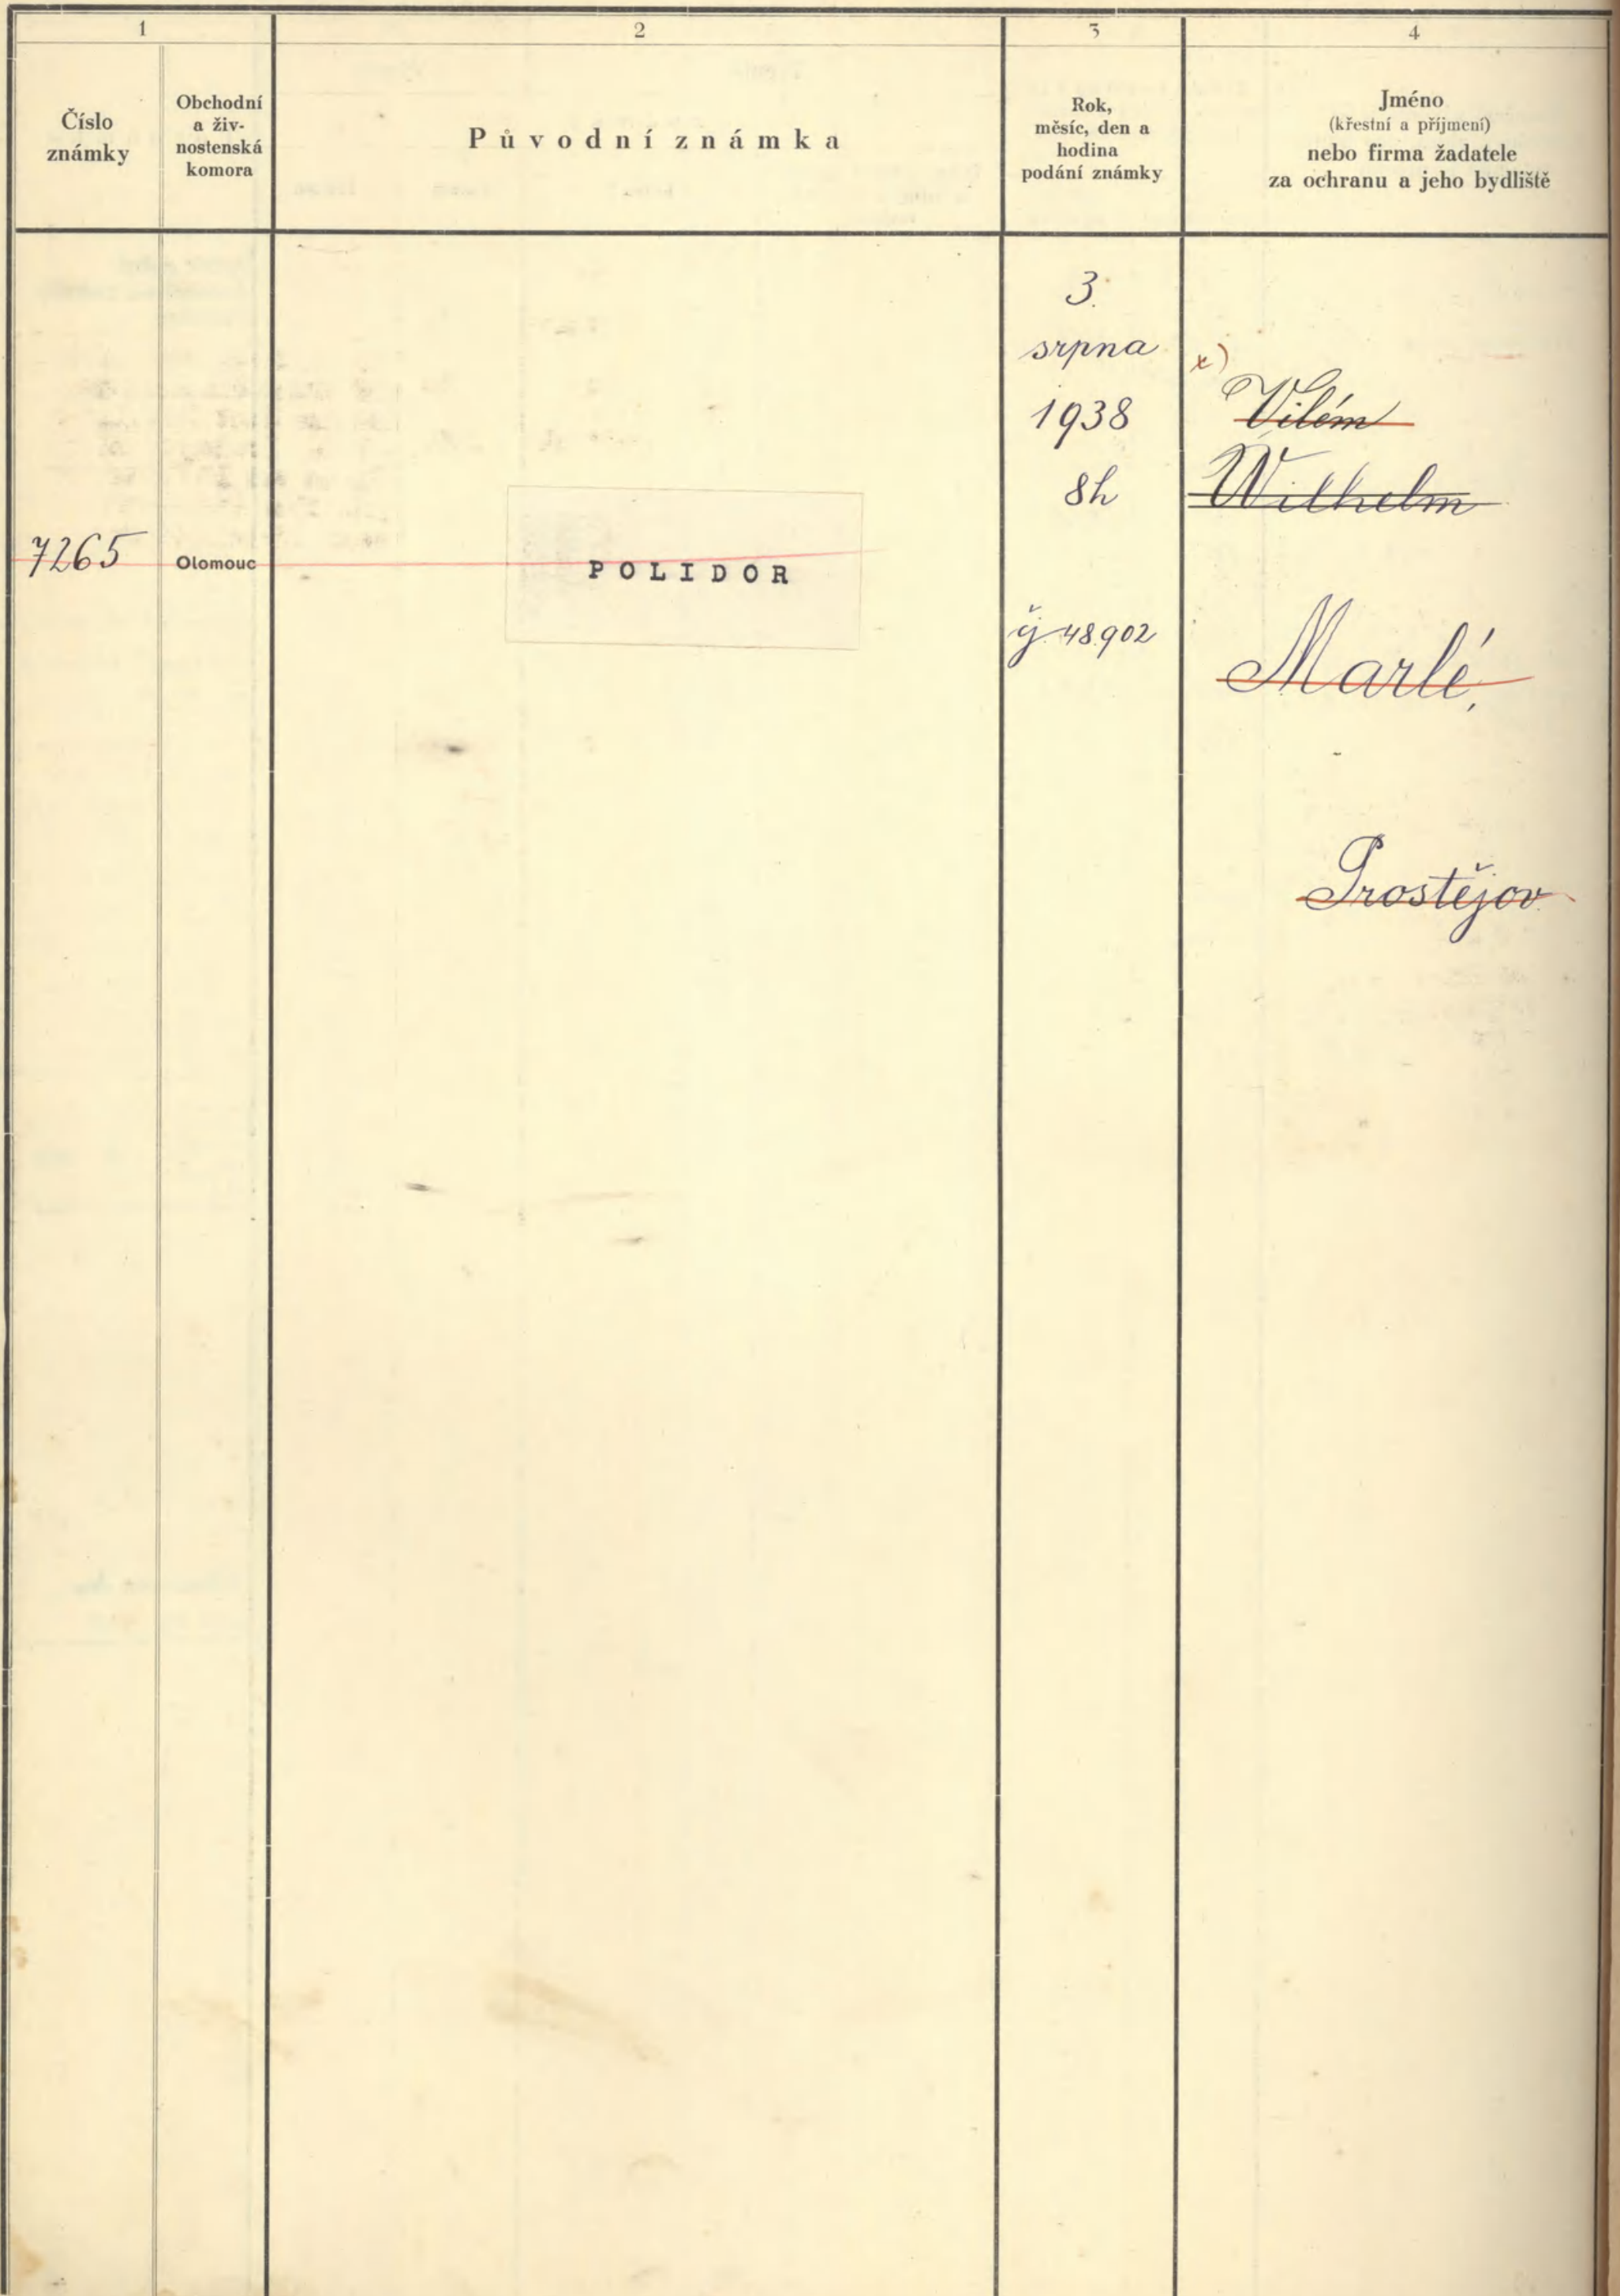 1
2
3
4
Číslo
známky
Obchodní
a živ-
nostenská
komora
Původní známka
Rok,
měsíc, den a
hodina
podání známky
Jméno
(křestní a příjmení)
nebo firma žadatele
za ochranu a jeho bydliště
7265
Olomouc
POLIDOR
3.
srpna
1938
8h
čj. 48.902
x)
Vilém
Wilhelm
Marlé,
Prostějov